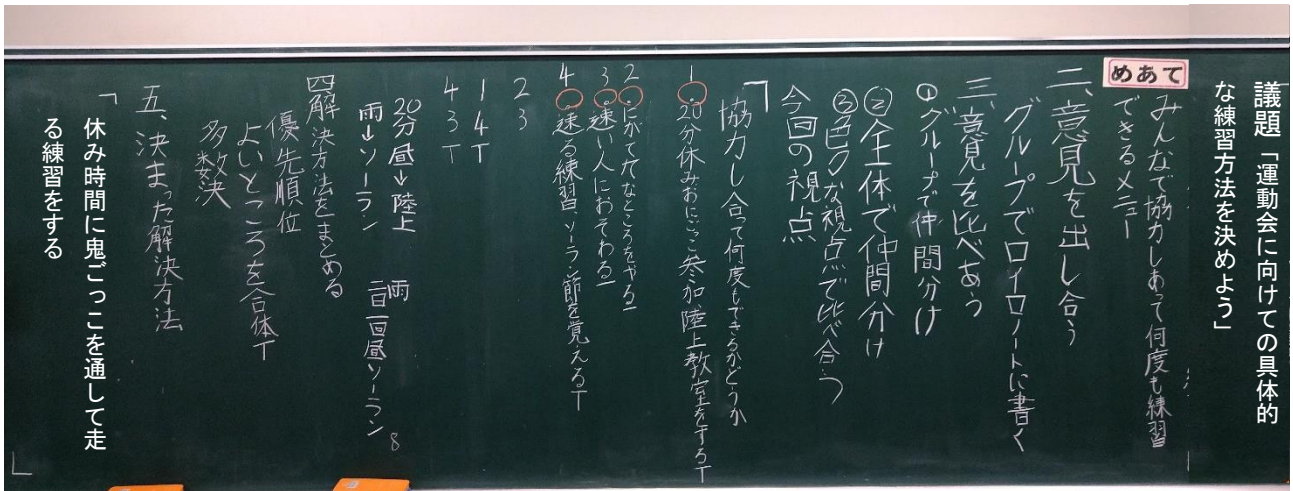 議題「運動会に向けての具体的
な練習方法を決めよう」
めあて
みんなで協力しあって何度も練習
できるメニュー
二、意見を出し合う
グループでロイロノートに書く
三、意見を比べあう
①グループで仲間分け
②全体で仲間分け
③色々な視点で比べ合う
今回の視点
「協力し合って何度もできるかどうか
1 20分休みおにごっこ参加、陸上教室をする T
2 にがてなところをやる 一
3 速い人におそわる 一
4 速る練習、ソーラン節を覚える T
2 3
1 4 T
4 3 T
20分昼→陸上
雨→ソーラン
雨
二日一回昼ソーラン 8
四 解決方法をまとめる
優先順位
よいところを合体 T
多数決
五、決まった解決方法
「休み時間に鬼ごっこを通して走
る練習をする
」